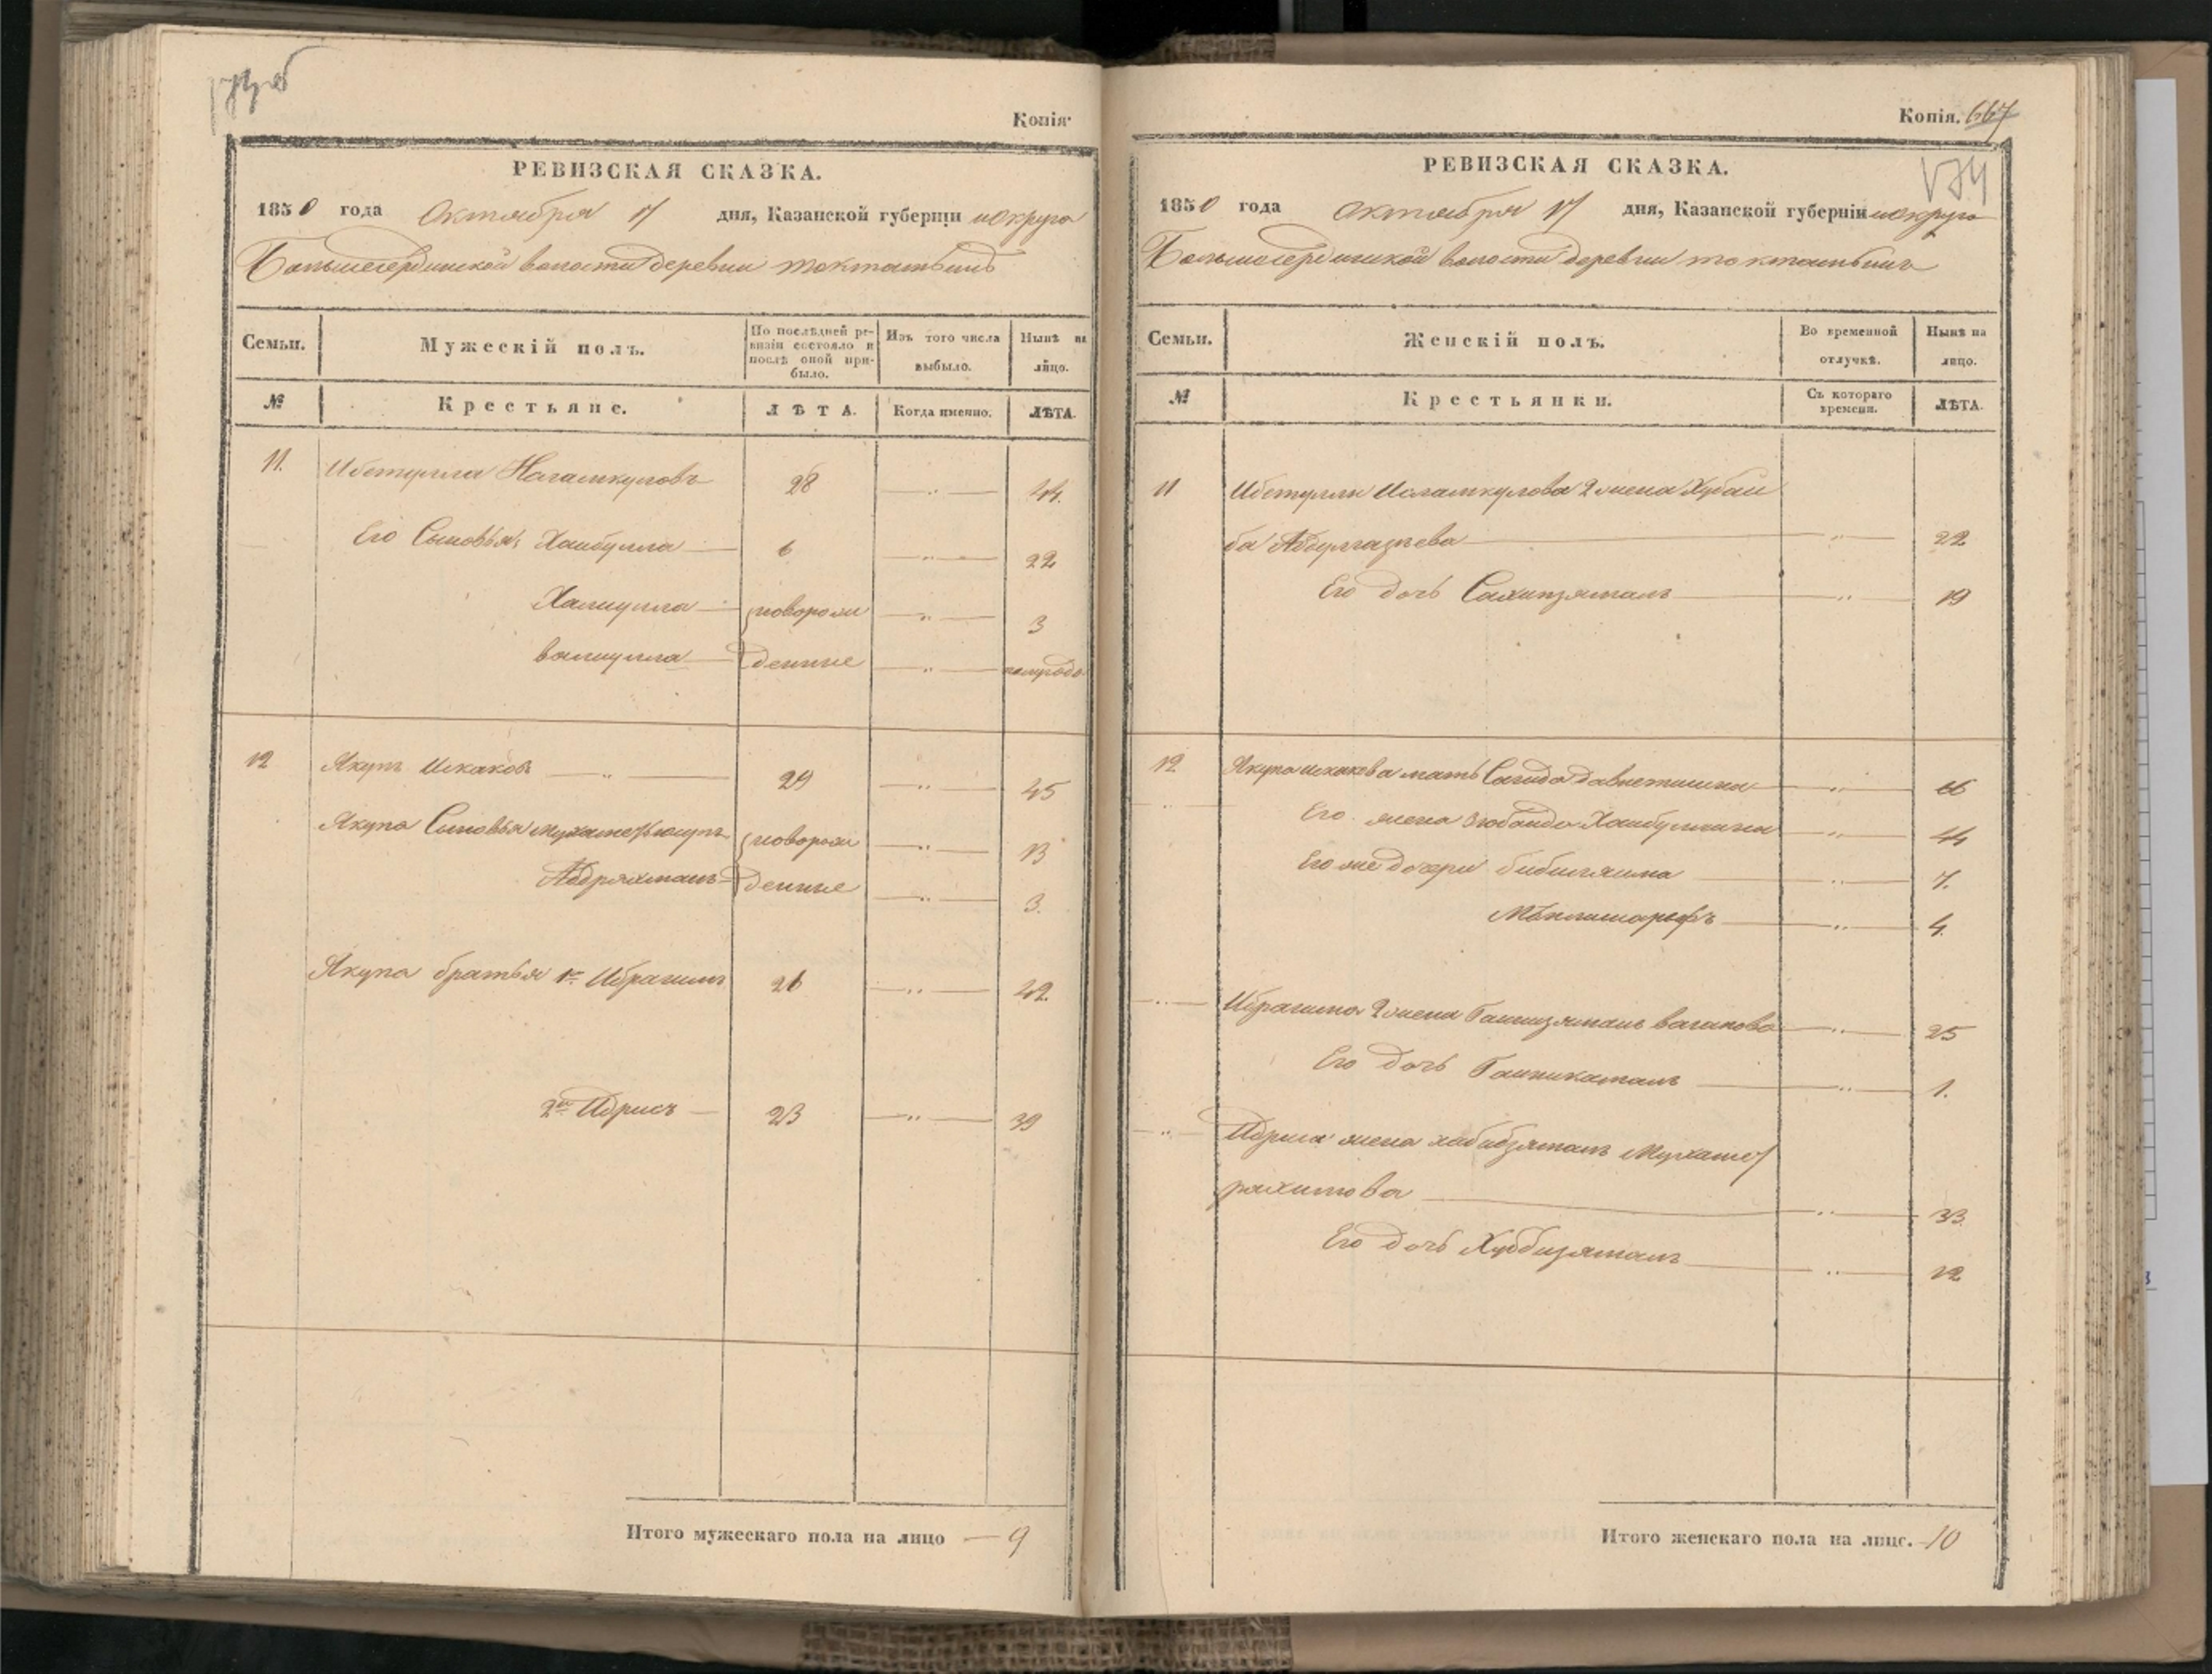 Копія.
РЕВИЗСКАЯ СКАЗКА.
1850 года Октября 17 дня, Казанской губерніи и округа
Большесердинской волости деревни токтамышъ
Семьи. Мужескій полъ. По послѣдней ревизіи состояло и послѣ оной прибыло. Изъ того числа выбыло. Нынѣ на лицо.
№ Крестьяне. ЛѢТА. Когда именно. ЛѢТА.
11. Ибетулла 28 44.
Его Сыновья, Хаибулла 6 22
Халиулла новорож 3
валиулла денные полугодо
12 Якупъ Искаковъ 29 45
Якупа Сыновья новорож 13
Абдряхманъ денные 3.
Якупа братья 1й Ибрагимъ 26 42.
2й Идрисъ 23 39
Итого мужескаго пола на лицо 9
Копія. 667
РЕВИЗСКАЯ СКАЗКА.
1850 года октября 17 дня, Казанской губерніи и округа
Большесердинской волости деревни токтамышъ
Семьи. Женскій полъ. Во временной отлучкѣ. Нынѣ на лицо.
№ Крестьянки. Съ котораго времени. ЛѢТА.
11 Ибетуллы Исламкулова 2 жена Хубаи
ба Абдулгазыева 22
Его дочь Сахипзямалъ 19
12 Якупа искакова мать Сагида давлетшина 66
Его жена Зюбаида Хаибуллина 44
Его же дочери бибигяима 7.
4.
Ибрагима 2 жена вагапова 25
Его дочь 1.
Идриса жена хабибзямалъ Мухаме/
рахимова 33
Его дочь Хуббизямалъ 12
Итого женскаго пола на лицо. 10